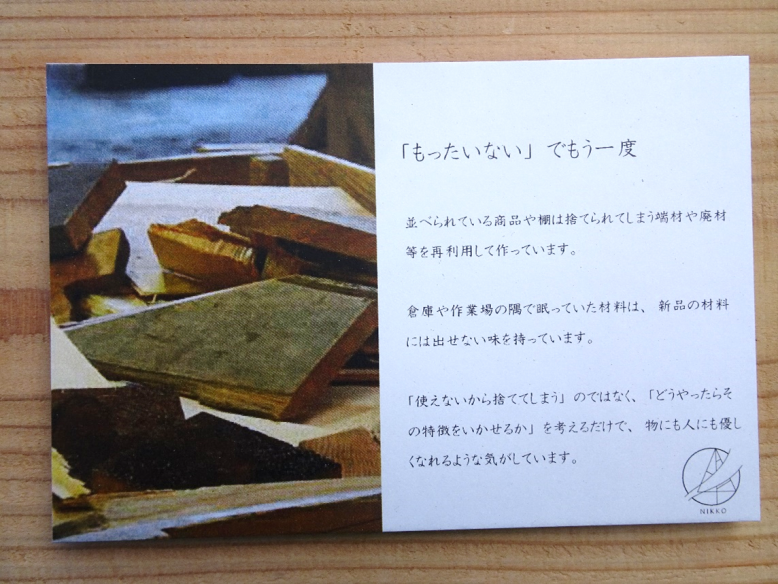 「もったいない」でもう一度
並べられている商品や棚は捨てられてしまう端材や廃材
等を再利用して作っています。
倉庫や作業場の隅で眠っていた材料は、新品の材料
には出せない味を持っています。
「使えないから捨ててしまう」のではなく、「どうやったらそ
の特徴をいかせるか」を考えるだけで、物にも人にも優し
くなれるような気がしています。
NIKKO